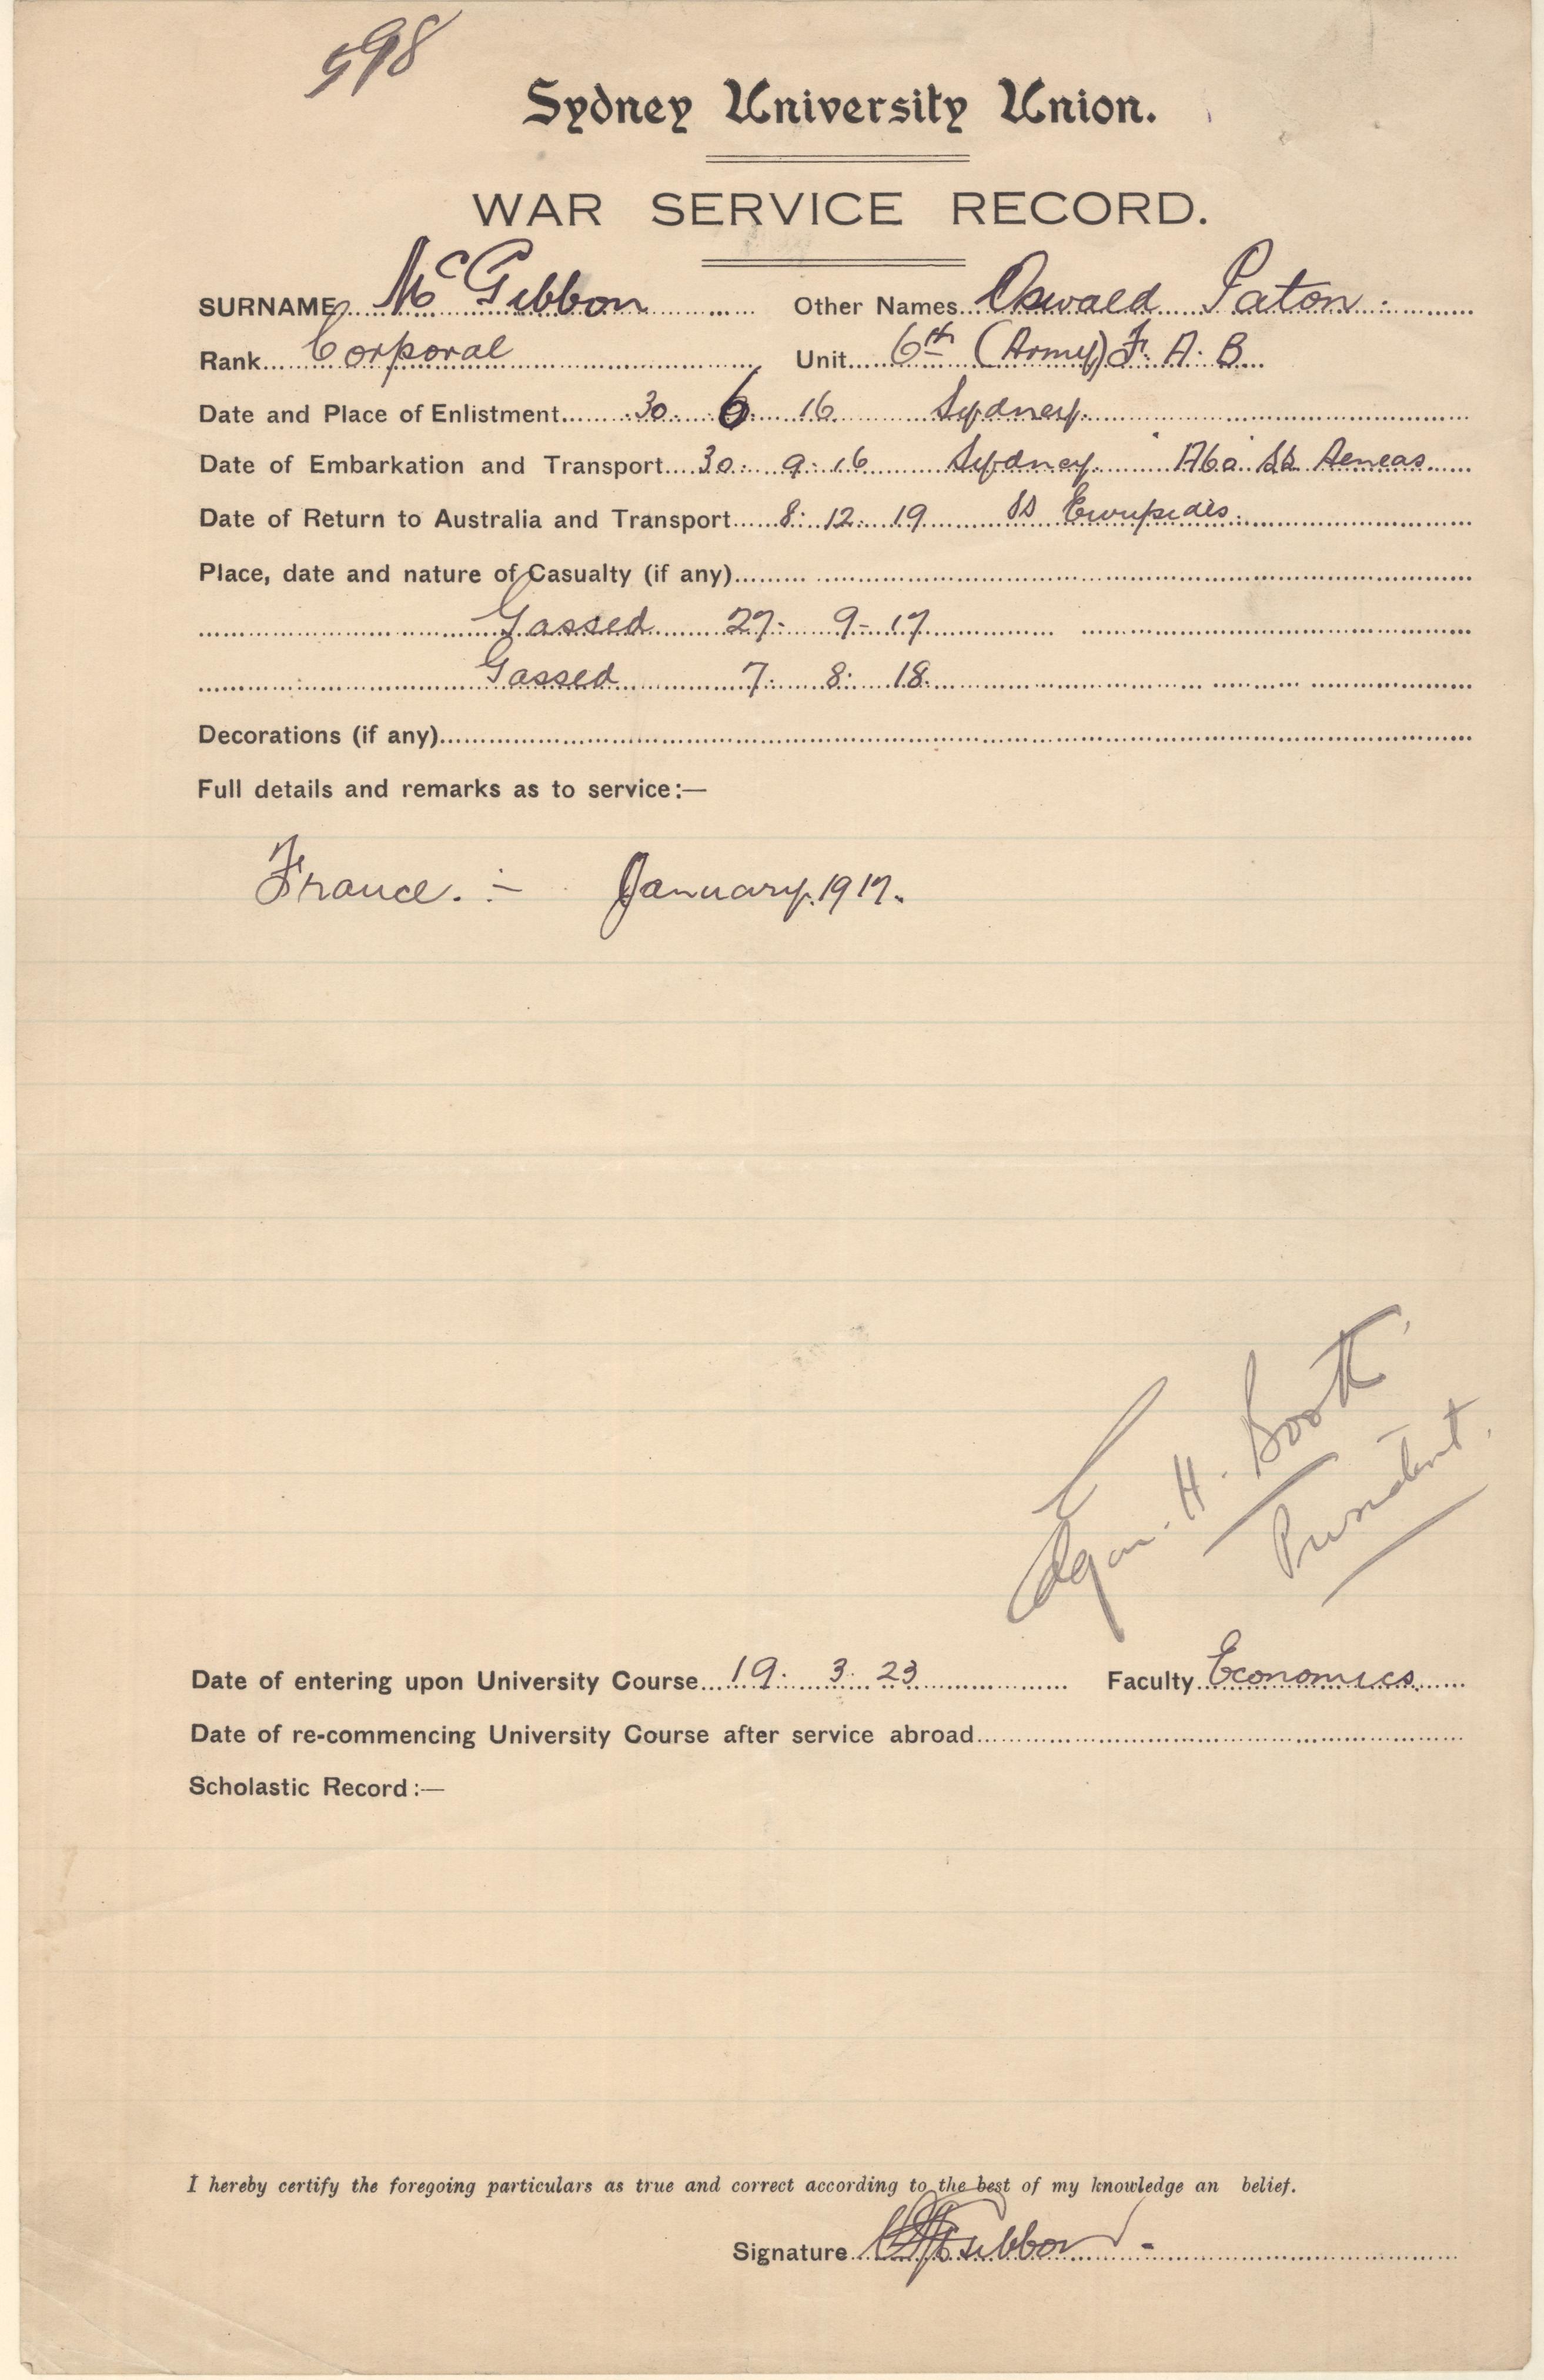 598
Sydney University Union.
WAR SERVICE RECORD.
SURNAME McGibbon Other Names Oswald Paton.
Rank Corporal Unit 6th (Army) F. A. B.
Date and Place of Enlistment 30. 6. 16 Sydney.
Date of Embarkation and Transport 30. 9. 16 Sydney. A60 SS Aeneas.
Date of Return to Australia and Transport 8. 12. 19 SS Euripides.
Place, date and nature of Casualty (if any)
Gassed 27. 9. 17
Gassed 7. 8. 18.
Decorations (if any)
Full details and remarks as to service:—
France. :- January. 1917.
Edgar. H. Booth
President.
Date of entering upon University Course 19. 3. 23 Faculty Economics
Date of re-commencing University Course after service abroad
Scholastic Record:—
I hereby certify the foregoing particulars as true and correct according to the best of my knowledge an belief.
Signature OPMcGibbon